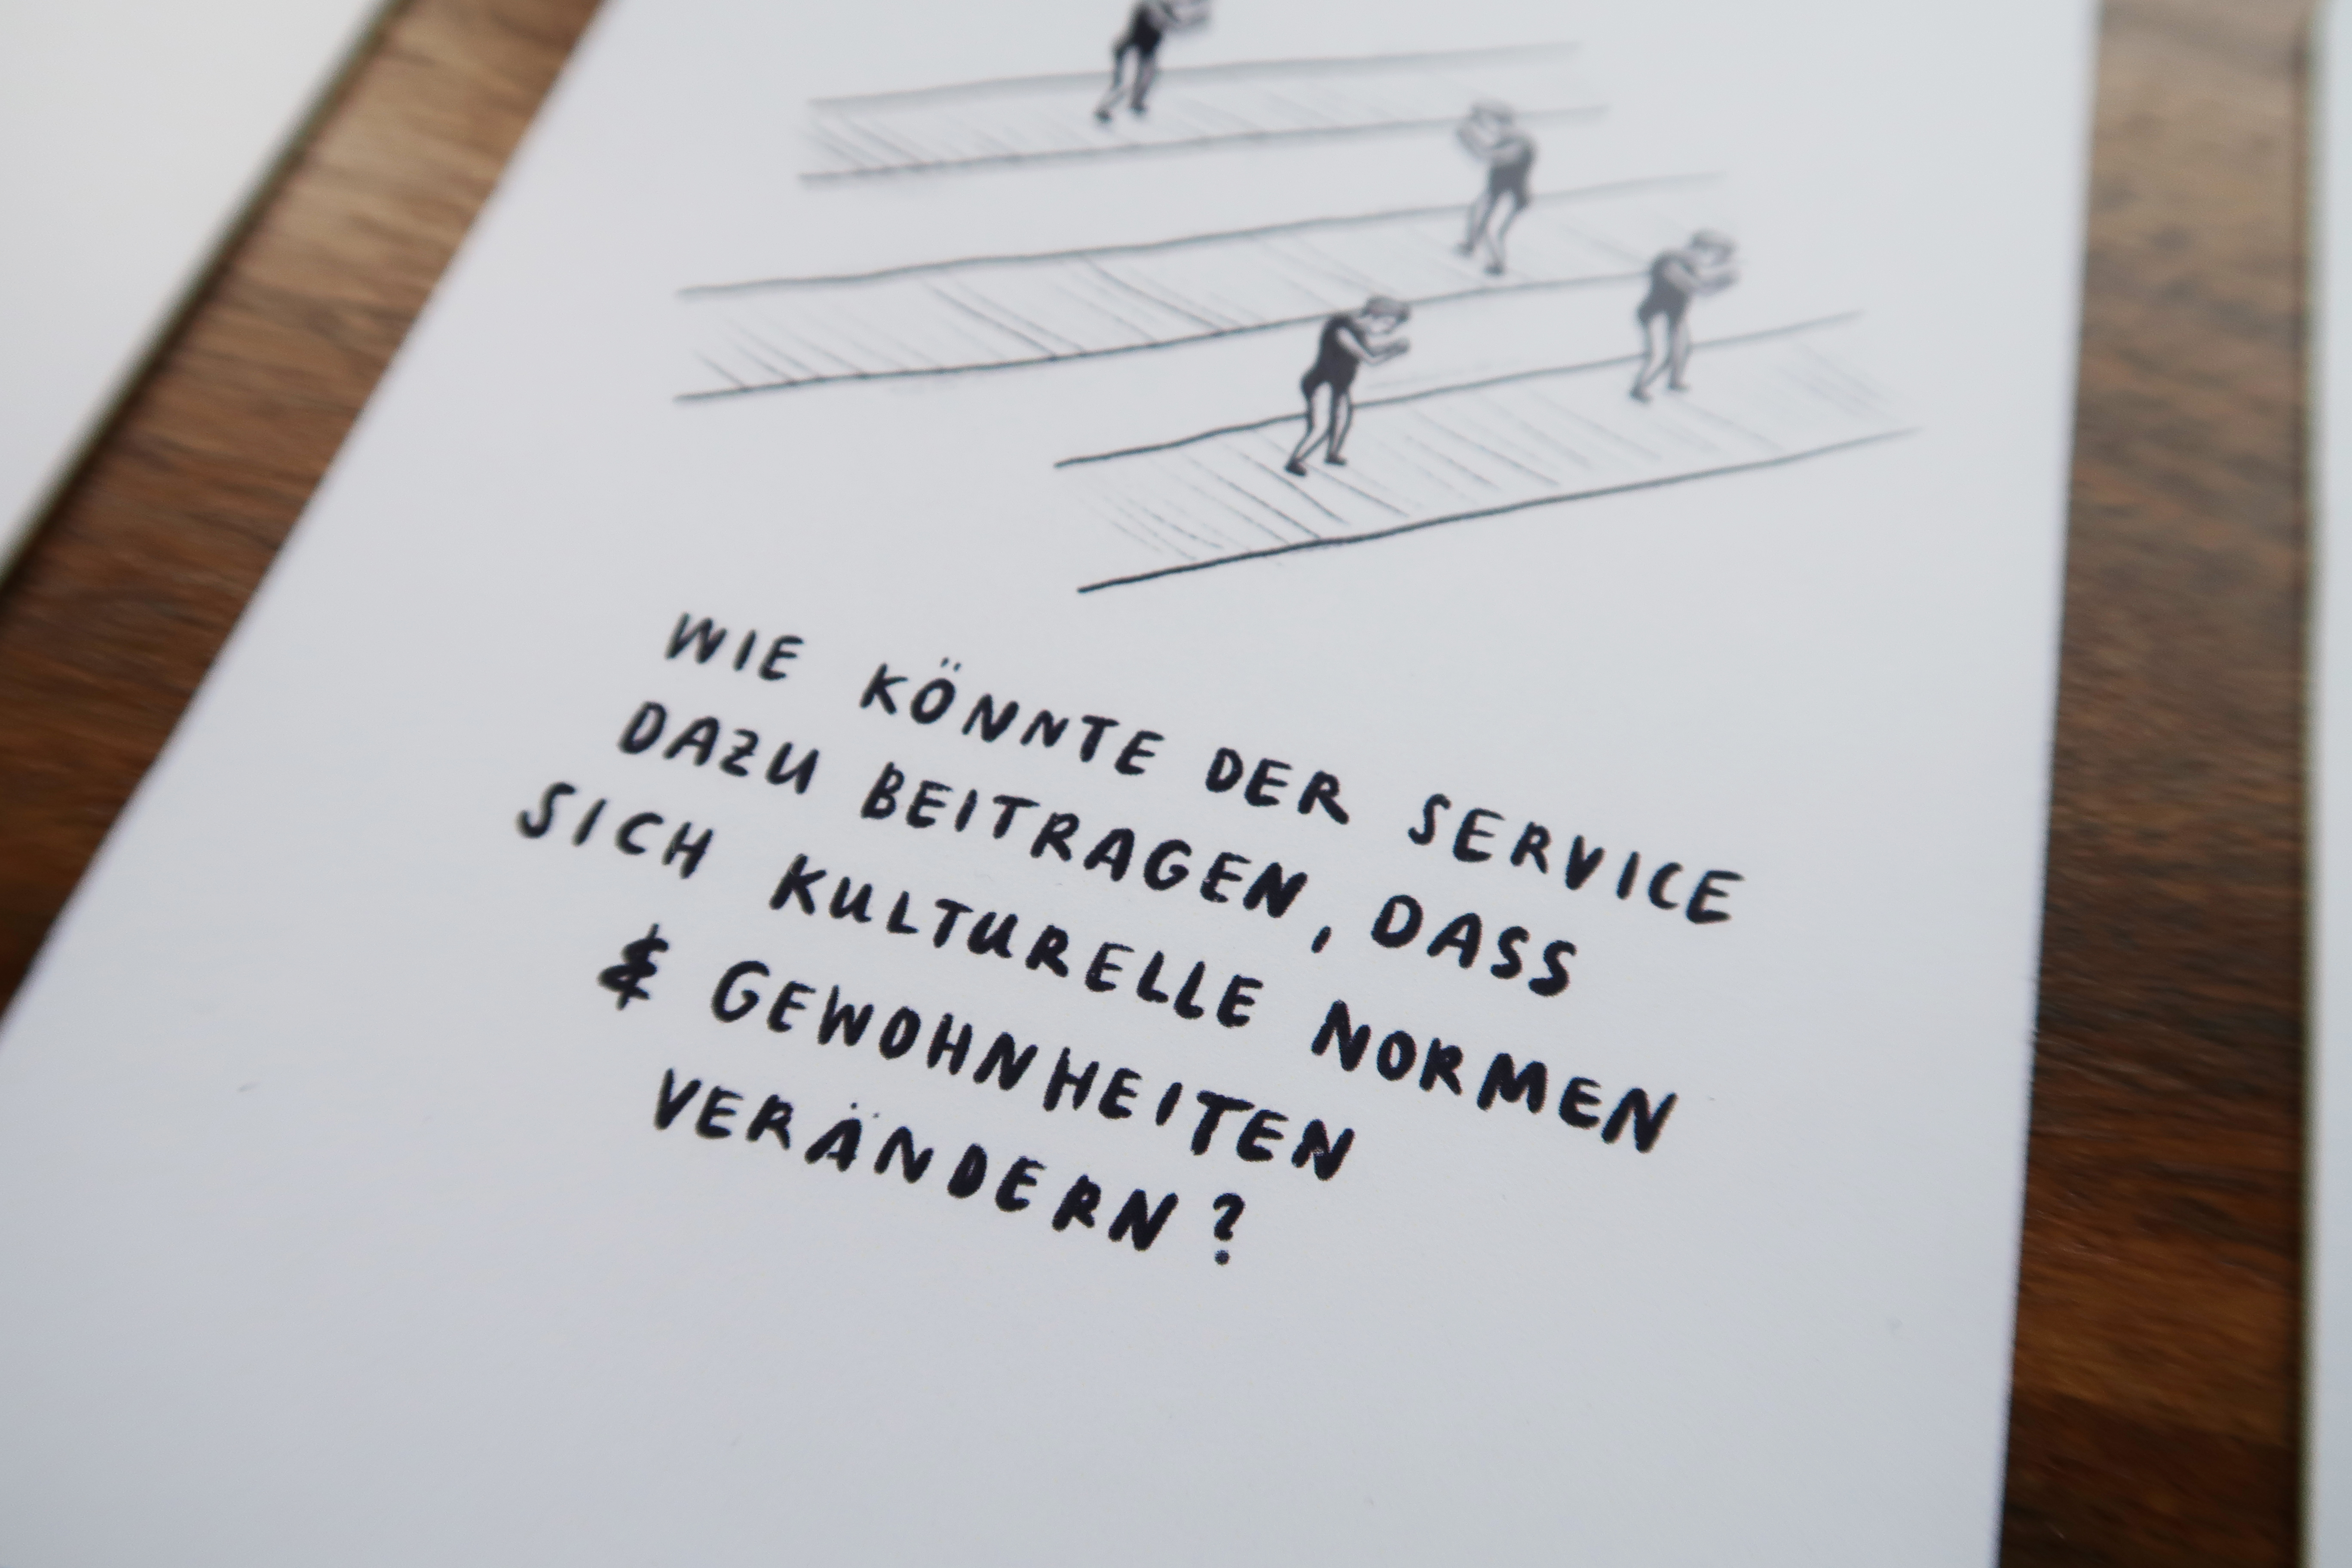 WIE KÖNNTE DER SERVICE
DAZU BEITRAGEN, DASS
SICH KULTURELLE NORMEN
& GEWOHNHEITEN
VERÄNDERN?